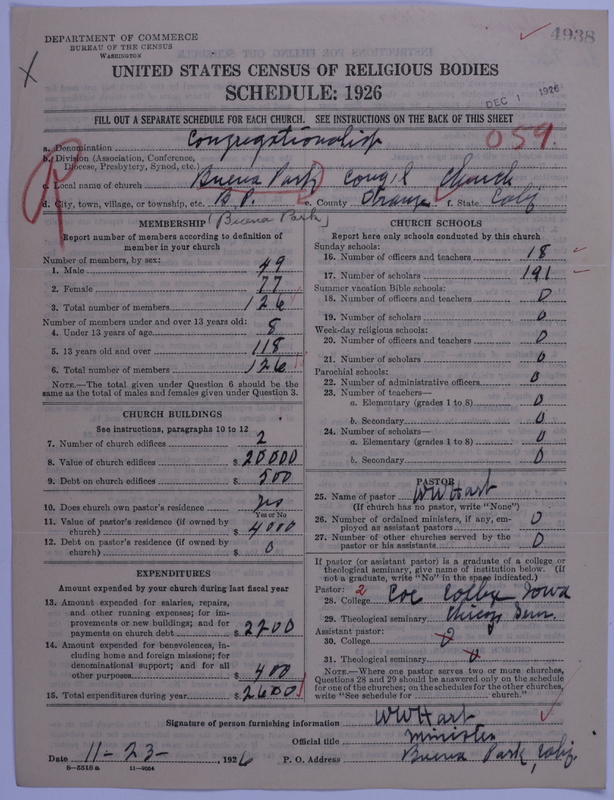 DEPARTMENT OF COMMERCE
BUREAU OF THE CENSUS
WASHINGTON
4938
UNITED STATES CENSUS OF RELIGIOUS BODIES
SCHEDULE: 1926
DEC 1 1926
FILL OUT A SEPARATE SCHEDULE FOR EACH CHURCH. SEE INSTRUCTIONS ON THE BACK OF THIS SHEET
a. Denomination Congregationalist 059
b. Division (Association, Conference, Diocese, Presbytery, Synod, etc.)
c. Local name of church Buena Park Cong'l Church
d. City, town, village, or township, etc. B.P. e. County Orange f. State Calif
(Buena Park)
MEMBERSHIP
Report number of members according to definition of member in your church
Number of members, by sex:
1. Male 49
2. Female 77
3. Total number of members 126
Number of members under and over 13 years old:
4. Under 13 years of age 8
5. 13 years old and over 118
6. Total number of members 126
NOTE.—The total given under Question 6 should be the same as the total of males and females given under Question 3.
CHURCH BUILDINGS
See instructions, paragraphs 10 to 12
7. Number of church edifices 2
8. Value of church edifices $ 20000
9. Debt on church edifices $ 500
10. Does church own pastor's residence yes
Yes or No
11. Value of pastor's residence (if owned by church) $ 4000
12. Debt on pastor's residence (if owned by church) $ 0
EXPENDITURES
Amount expended by your church during last fiscal year
13. Amount expended for salaries, repairs, and other running expenses; for improvements or new building; and for payments on church debt $ 2200
14. Amount expended for benevolences, including home and foreign missions; for denominational support; and for all other purposes $ 400
15. Total expenditures during year $ 2600
CHURCH SCHOOLS
Report here only schools conducted by this church
Sunday schools:
16. Number of officers and teachers 18
17. Number of scholars 191
Summer vacation Bible schools:
18. Number of officers and teachers 0
19. Number of scholars 0
Week-day religious schools:
20. Number of officers and teachers 0
21. Number of scholars 0
Parochial schools:
22. Number of administrative officers 0
23. Number of teachers—
a. Elementary (grades 1 to 8) 0
b. Secondary 0
24. Number of scholars—
a. Elementary (grades 1 to 8) 0
b. Secondary 0
PASTOR
25. Name of pastor WW Hart
(If church has no pastor, write "None")
26. Number of ordained ministers, if any, employed as assistant pastors 0
27. Number of other churches served by the pastor or his assistants 0
If pastor (or assistant pastor) is a graduate of a college or theological seminary, give name of institution below. (If not a graduate, write "No" in the space indicated.)
Pastor: 2
28. College Coe College Iowa
29. Theological seminary Chicago Sem.
Assistant pastor:
30. College 0
31. Theological seminary 0
NOTE.—Where one pastor serves two or more churches, Questions 28 and 29 should be answered only on the schedule for one of the churches; on the schedules for the other churches, write "See schedule for church."
Signature of person furnishing information WW Hart
Official title Minister
Date 11-23-, 1926 P. O. Address Buena Park, Calif.
8—5518a 11—9064